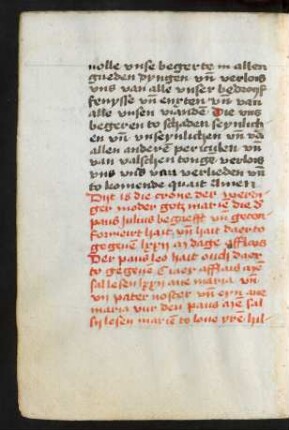 volle vnse begerte in allen
gueden dyngen vñ verlois
vns van alle vnser bedroyff
fenysse vñ enxten vñ van
alle vnsen vianden Die vns
begeren to schaden seynlich
en vñ vnseynlichen vñ vā
allen anderē periculen vñ
van valschen tonge verlois
vns vā verlieden vñ
to komende quait Amen
Dijt is die crone der werdi
ger moder gotz marie die d'
paus Julius begrefft vñ gecon
formeirt hait vñ hait daerto
gegeuē lxxij m dage afflais
Der paus leo hait ouch daer
to gegeuē afflais
sal lesen lxxij aue maria vñ
vij pater noster vñ eyn aue
maria vur den paus sal
lesen mariē to loue